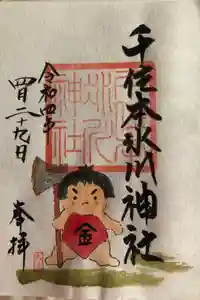 千住本氷川神社
氷川神社
令和四年
四月二十九日
奉拝
金